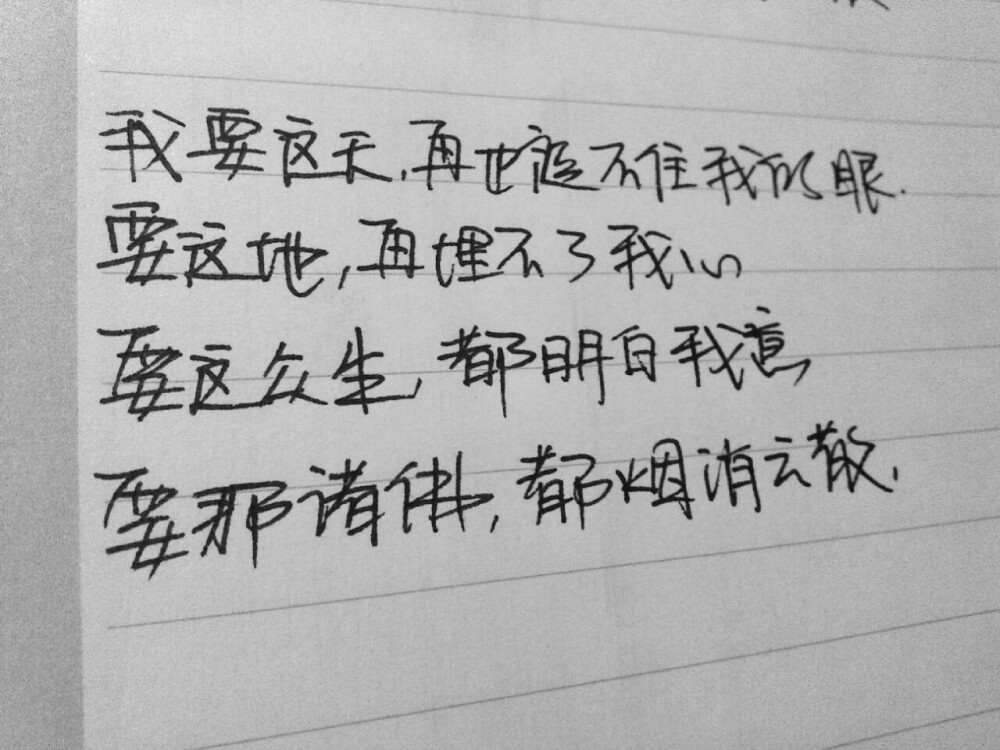 我要这天,再也遮不住我的眼.
要这地,再埋不了我心
要这众生,都明白我意
要那诸佛,都烟消云散.